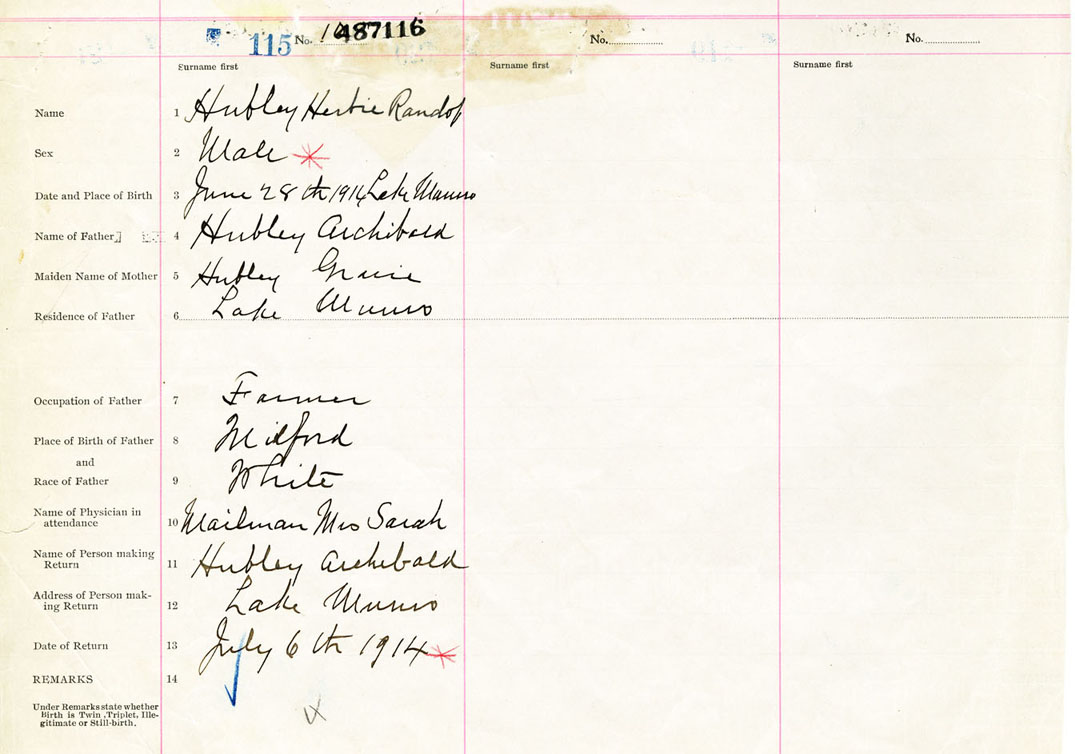 115 No. 487116 No. No.
Surname first Surname first Surname first
Name 1 Hubley Herbie Randolf
Sex 2 Male
Date and Place of Birth 3 June 28th 1914 Lake Munro
Name of Father 4 Hubley Archibald
Maiden Name of Mother 5 Hubley
Residence of Father 6 Lake Munro
Occupation of Father 7 Farmer
Place of Birth of Father 8 Milford
and
Race of Father 9 White
Name of Physician in
attendance 10 Mailman Mrs Sarah
Name of Person making
Return 11 Hubley Archibald
Address of Person mak-
ing Return 12 Lake Munro
Date of Return 13 July 6th 1914
REMARKS 14
Under Remarks state whether
Birth is Twin, Triplet, Ille-
gitimate or Still-birth.